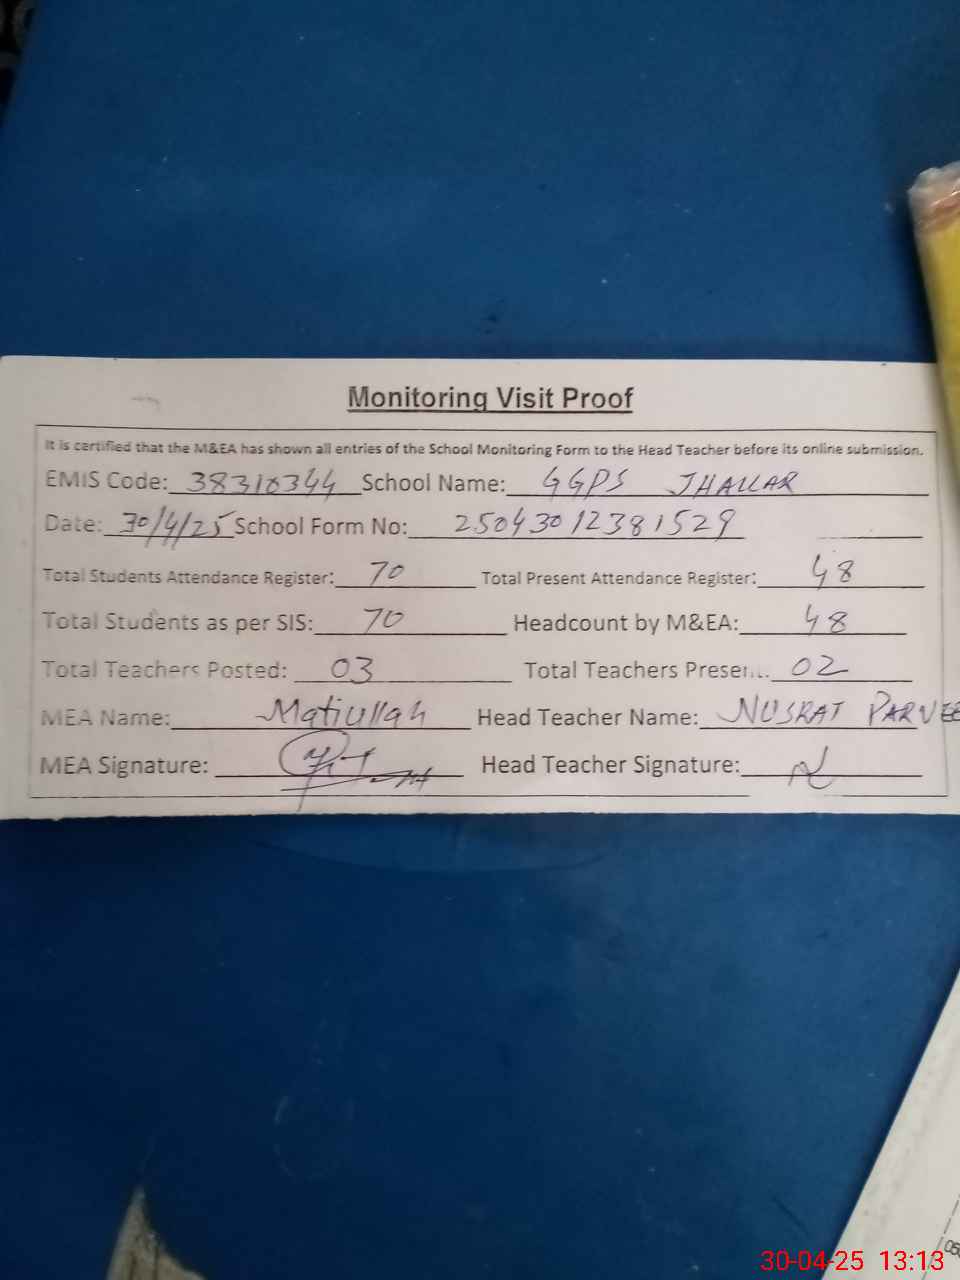 Monitoring Visit Proof
It is certified that the M&EA has shown all entries of the School Monitoring Form to the Head Teacher before its online submission.
EMIS Code: 38310344 School Name: GGPS JHALLAR
Date: 30/4/25 School Form No: 25043012381529
Total Students Attendance Register: 70 Total Present Attendance Register: 48
Total Students as per SIS: 70 Headcount by M&EA: 48
Total Teachers Posted: 03 Total Teachers Present: 02
MEA Name: Matiullah Head Teacher Name: NUSRAT PARVEE
MEA Signature: Head Teacher Signature:
30-04-25 13:13